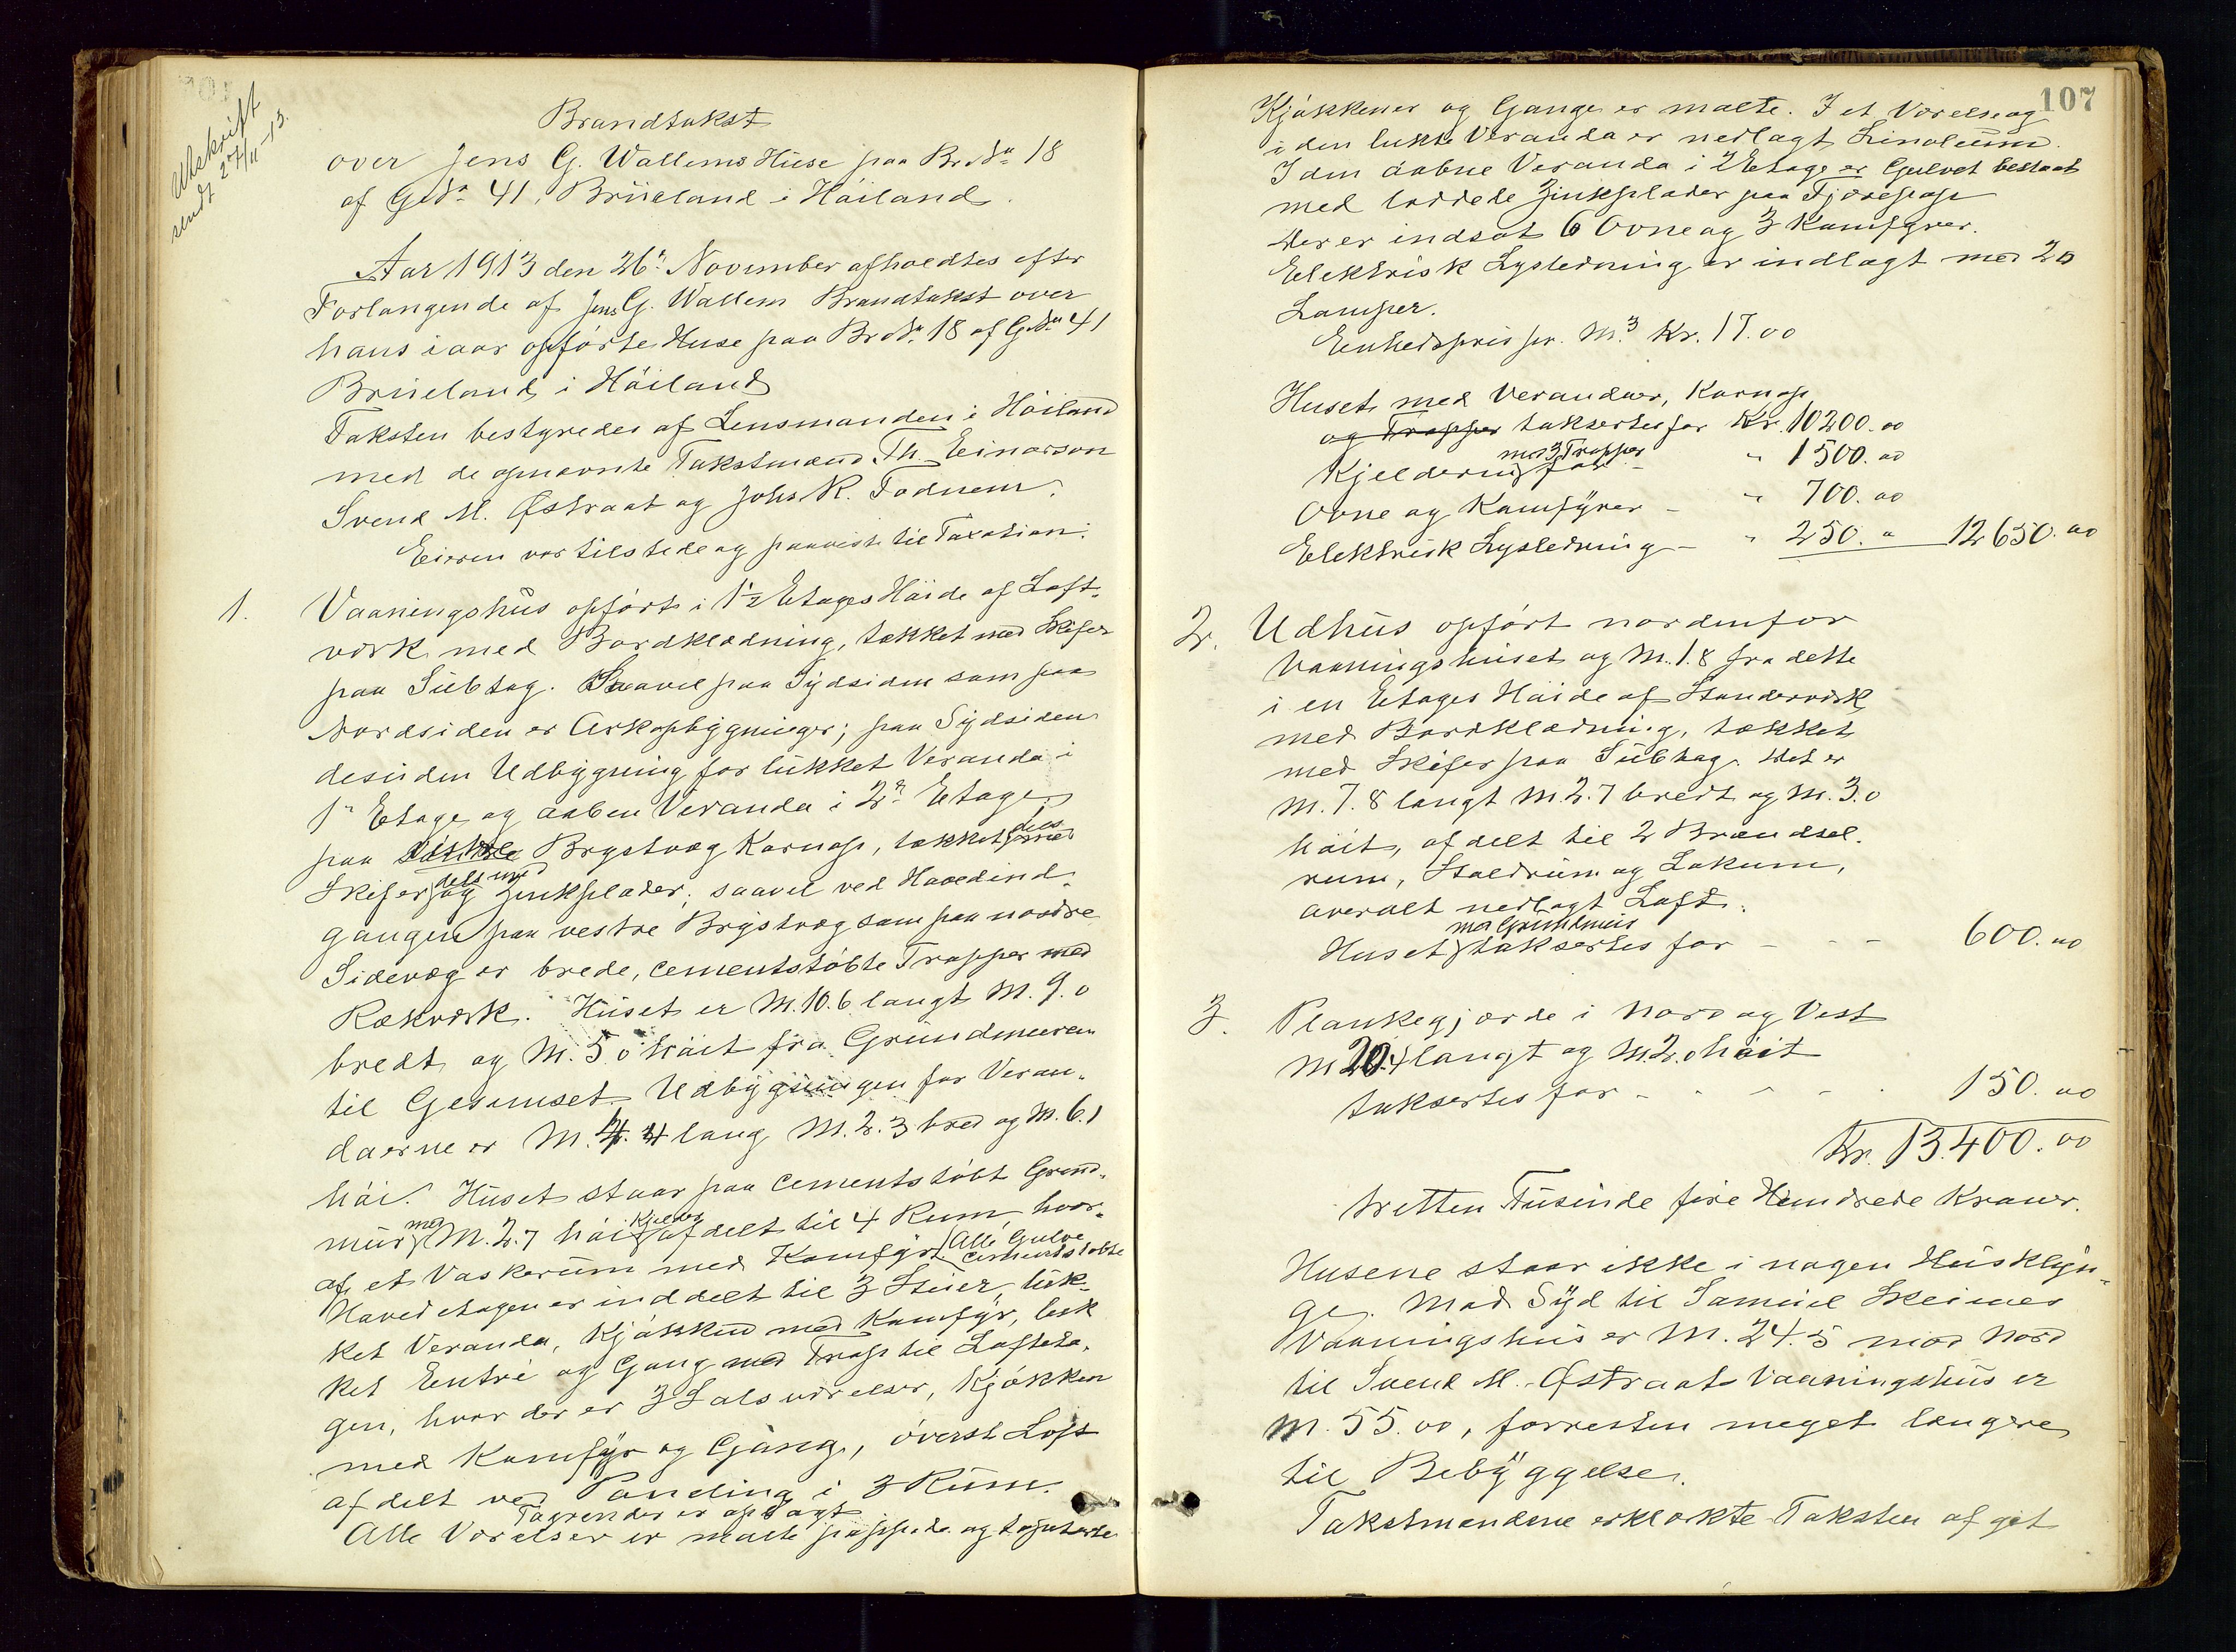 Utskrift
sendt 27/11-13.
Brandtakst
over Jens G. Wallems Huse paa Br.No 18
af G.No 41, Brueland i Høiland.
Aar 1913 den 26' November afholdtes efter
Forlangende af Jens G. Wallem Brandtakst over
hans iaar opførte Huse paa Br.No 18 af G.No 41
Brueland i Høiland
Taksten bestyredes af Lensmanden i Høiland
med de opnævnte Takstmænd Th. Einarson
Svend M. Østraat og Johs R. Fodnem.
Eieren var tilstede og paaviste til Taxation:
1. Vaaningshus opført i 1½ Etages Høide af Loft-
værk med Bordklædning, tækket med Skifer
paa Subtag. Saavel paa Sydsiden som paa
Nordsiden er Arkopbygninger; paa Sydsiden
desuden Udbygning for lukket Veranda i
1ste Etage og aaben Veranda i 2den Etage,
paa østre Brystvæg Karnap, tækket dels med
Skifer og dels med Zinkplader; saavel ved Hovedind-
gangen paa vestre Brystvæg som paa nordre
Sidevæg er brede, cementstøbte Trapper med
Rækværk. Huset er M. 10.6 langt M. 9.0
bredt og M. 5.0 høit fra Grundmuren
til Gesimset. Udbygningen for Veran-
daerne er M. 4.4 lang M. 2.3 bred og M. 6.1
høi. Huset staar paa cementstøbt Grund-
mur med M. 2.7 høi Kjelder afdelt til 4 Rum, hvor-
af et Vaskerum med Komfyr. Alle Gulve cementstøbte
Hovedetagen er inddelt til 3 Stuer, luk-
ket Veranda, Kjøkken med Komfyr, luk
ket Entré og Gang med Trap til Lofteta-
gen, hvor der er 3 Sals værelser, Kjøkken
med Komfyr og Gang, øverst Loft
afdelt ved Paneling i 3 Rum.
Tagrender er oplagt
Alle Værelser er malte pappede og tapeterte
107
Kjøkkener og Gange er malte. I et Værelse og
i den lukte Veranda er nedlagt Linoleum.
I den aabne Veranda i 2 Etage er Gulvet beslaat
med loddede Zinkplader paa Tjærepap
Der er indsat 6 Ovne og 3 Komfyrer.
Elektrisk Lysledning er indlagt med 20
Lamper.
Enhedspris pr. M.3 Kr. 17.00
Huset med Verandaer, Karnap
og Trapper taksertes for Kr. 10200.00
Kjelderen med 3 Trapper for - " 1500.00
Ovne og Komfyrer - " 700.00
Elektrisk Lysledning - " 250. " 12650.00
2. Udhus opført nordenfor
Vaaningshuset og M. 1.8 fra dette
i en Etages Høide af Standerværk
med Bordklædning, tækket
med Skifer paa Subtag. Det er
M. 7.8 langt M 2.7 bredt og M. 3.0
høit, afdelt til 2 Brændsel-
rum, Staldrum og Lokum,
overalt nedlagt Loft.
Huset med Grundmur taksertes for - - - 600.00
3. Plankegjærde i Nord og Vest
M 20.4 langt og M. 2.0 høit
taksertes for - - - - 150.00
Kr. 13.400.00
tretten Tusinde fire Hundrede Kroner.
Husene staar ikke i nogen Huskljn-
ge. Mod Syd til Samuel Skeimes
Vaaningshus er M. 24.5 mod Nord
til Svend M. Østraats Vaaningshus er
M. 55.00, forresten meget længere
til Bebyggelse.
Takstmændene erklærte Taksten afgit